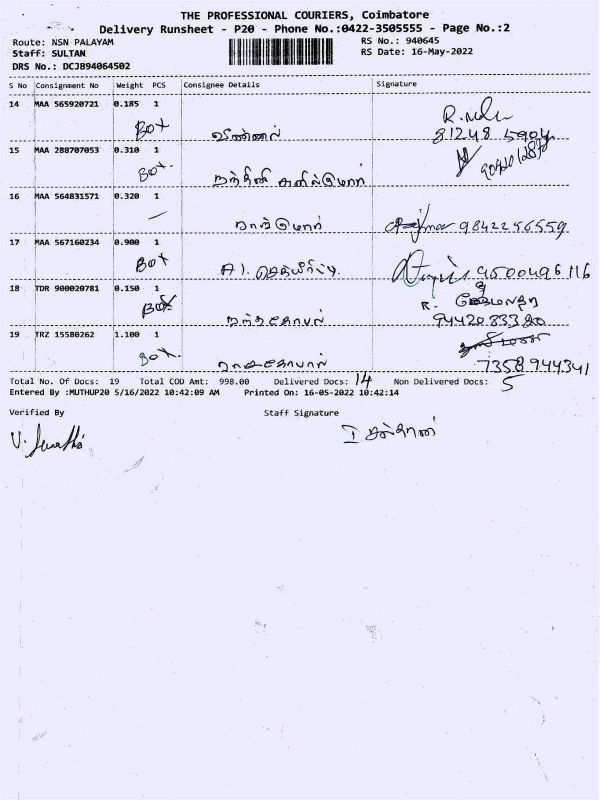 THE PROFESSIONAL COURIERS, Coimbatore
Delivery Runsheet - P20 - Phone No.:0422-3505555 - Page No.:2
Route: NSN PALAYAM
RS No.: 940645
Staff: SULTAN
RS Date: 16-May-2022
DRS No.: DCJB94064502
S No Consignment No Weight PCS Consignee Details Signature
14 MAA 565920721 0.185 1
Box
81248
15 MAA 288707053 0.310 1
Box
நந்தினி
16 MAA 564831571 0.320 1
9842256559
17 MAA 567160234 0.900 1
Box 9500496116
18 TDR 900020781 0.150 1
Box R.
நந்தகோபால் 94420 83380
19 TRZ 15580262 1.100 1
Box
ராஜகோபால் 7358 944341
Total No. Of Docs: 19 Total COD Amt: 998.00 Delivered Docs: 14 Non Delivered Docs: 5
Entered By :MUTHUP20 5/16/2022 10:42:09 AM Printed On: 16-05-2022 10:42:14
Verified By Staff Signature